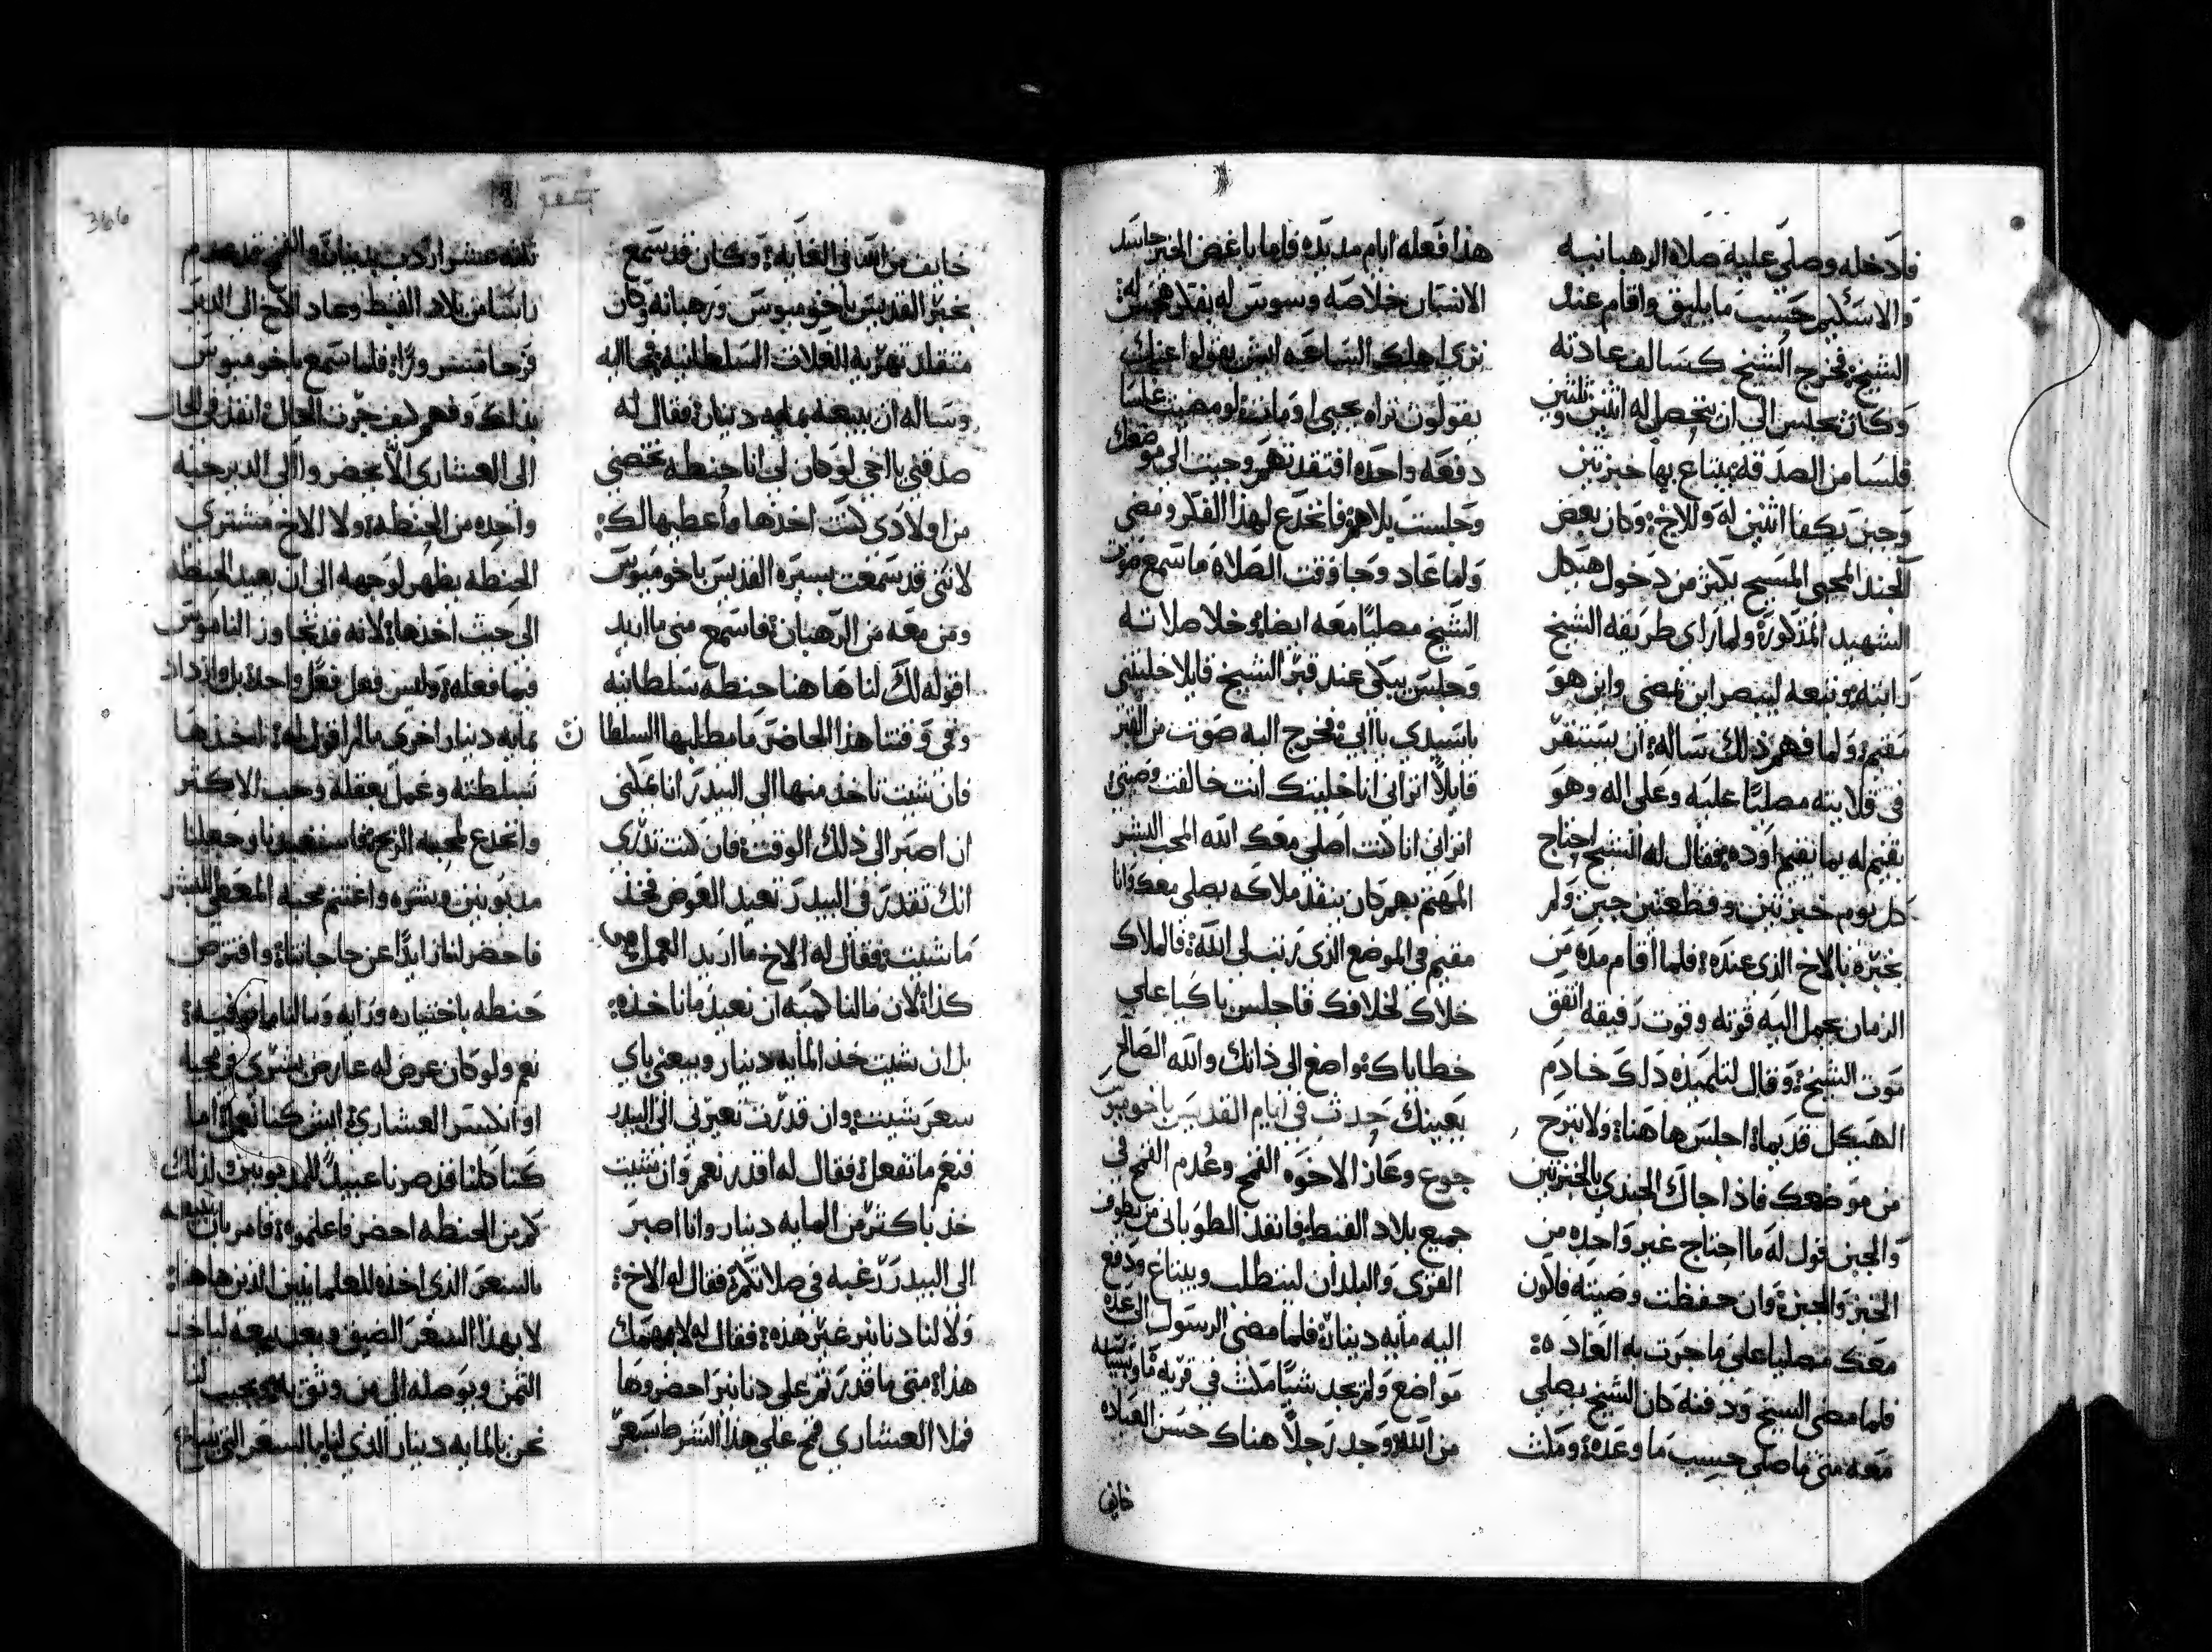 فادخله وصلي عليه صلاة الرهبانيه
والاسكيم حسب ما يليق واقام عند
الشيخ فخرج الشيخ كسالف عادته
وكان يجلس الى ان يتحصل له اثنين وثلثين
فلسا من الصدقه يبتاع بها خبزتين
وجبن يكفا اثنين له وللاخ وكان بعض
الجند المحبي المسيح يكثر من دخول هيكل
الشهيد المذكورة ولما راى طريقة الشيخ
رابته وتبعه لينصر اين يمضي واين هو
مقيم ولما فهم ذلك ساله ان يستقر
في قلايته مصليًا عليه وعلى اله وهو
يقيم له بما يقيم اوده فقال له الشيخ احتاج
كل يوم خبزتين وقطعتين جبن ولم
يخبره بالاخ الذي عنده فلما اقام مدة من
الزمان يحمل اليه قوته وقوت رفيقه اتفق
موت الشيخ وقال لتلميذه ذلك خادم
الهيكل قديما اجلس هاهنا ولا تبرح
من موضعك فاذا جاك الجندي بالخبزتين
والجبن قول له ما احتاج غير واحده من
الخبز والجبنة وان حفظت وصيته فاكون
معك مصليا على ما جرت به العادة
فلما مضى الشيخ ودفنه كان الشيخ يصلي
معه متى ما صلي حسب ما وعده ومكث
هذا فعله ايام مديده فلما باغض الخبر حاسد
الانسان خلاصه وسوس له بفلاهجس له
ترى اهلك الساعه ايش يقولوا عنك
يقولون تراه يحيى او مات لو مضيت غلسا
دفعه واحده افتقدتهم وجيت الى موضعك
وجلست بلا هم فانخدع لهذا الفكر ومضى
ولما عاد وجا وقت الصلاة ما سمع صوت
الشيخ مصليًا معه ايضا خلا صلاته
وجلس يبكي عند قبر الشيخ قايلا خليتني
يا سيدي يا ابي فخرج اليه صوت من القبر
قايلاً اتراني انا خليتك انت خالفت وصيتي
اتراني انا كنت اصلي معك الله المحب البشر
المهتم بهم كان ينفذ ملاكه يصلي معك وانا
مقيم في الموضع الذي رتب لي الله فالملاك
خلاك لخلافك فاجلس باكيا علي
خطاياك متواضع الى ذاتك والله الصالح
يعينك حدث في ايام القديس باخوميوس
جوع وعاز الاخوه القمح وعدم القمح في
جميع بلاد القبط فانفذ الطوباني من يطوف
القرى والبلدان ليتطلب ويبتاع ودفع
اليه مايه دينار فلما مضى الرسول الى عدة
مواضع ولم يجد شيًا مكث في قرية ما وبنيته
من الله وجد رجلاً هناك حسن العباده
خايف
خايف من الله في الغايه وكان قد سمع
بخبر القديس باخوميوس ورهبانه وكان
متقلد تهريه الغلات السلطانيه فجا اليه
وساله ان يبيعه بمايه دينار فقال له
صدقني يا اخي لو كان لي انا حنطه تخصني
من اولادي كنت اخذها واعطيها لك
لانني قد سمعت بسيره القديس باخوميوس
ومن معه من الرهبان فاسمع مني ما اريد
اقوله لك لنا هاهنا حنطه سلطانيه
وفي وقتنا هذا الحاضر ما يطلبها السلطان
فان شيت تاخذ منها الى البيدر انا يمكنني
ان اصبر الى ذلك الوقت فان كنت تدري
انك تقدر في البيدر تعيد العوض فخذ
ما شيت فقال له الاخ ما اريد العمل
كذا لان ما لنا كميه ان نعيد ما ناخذه
بل ان شيت خذ المايه دينار وبيعني باي
سعر شيت وان قدرت تعيرني الى البيدر
فنعم ما تفعل فقال له اقدر نعم وان شيت
خذ باكثر من المايه دينار وانا اصبر
الى البيدر رغبه في صلاتكم فقال له الاخ
ولا لنا دنانير غير هذه فقال له لا يهمك
هذا متى ما قدرتم على دنانير احضروها
فملا العشاري قمح على هذا الشرط بسعر
ثلثه عشر اردب بدينار والقمح قد عدم
باسًا من بلاد القبط وعاد الاخ الى الدير
فرحا مسرورًا فلما سمع باخوميوس
بذلك وفهم كيف جرت الحال انفذ في الحال
الى العشاري الا يحضروا الى الدير حبه
واحده من الحنطه ولا الاخ مشتري
الحنطه يظهر لوجهه الى ان يعيد الحنطه
الى حيث اخذها لانه قد تجاوز الناموس
فيما فعله وليس فعل فعل واحد بل وازداد
بمايه دينار اخرى ما لم اقول له اتخذها
بسلطته وعمل بعقله وحب الاكثر
وانخدع لمحبه الربح فاستعبدنا وجعلنا
مديونين وشره واغتنم محبه المعطي البشر
فاحضر لنا زايدًا عن حاجاتنا وافترض
حنطه باختياره ورايه وما لنا ما نوفيه
نعم ولو كان عرض له عارض بشري في مجيه
او انكسر العشاري ايش كنا نعمل اما
كنا كلنا قد صرنا عبيدًا للمديونين ولذلك
كم من الحنطه احضر فاعلموه فامر بان يبيعه
بالسعر الذي اخذه للعلمانيين الذين هاهنا
لا بهذا السعر الضيق وبعد بيعه لياخذ
الثمن ويوصله الى من وثق به ويجيب لنا
نحن بالمايه دينار الذي لنا بالسعر التي تباع
366